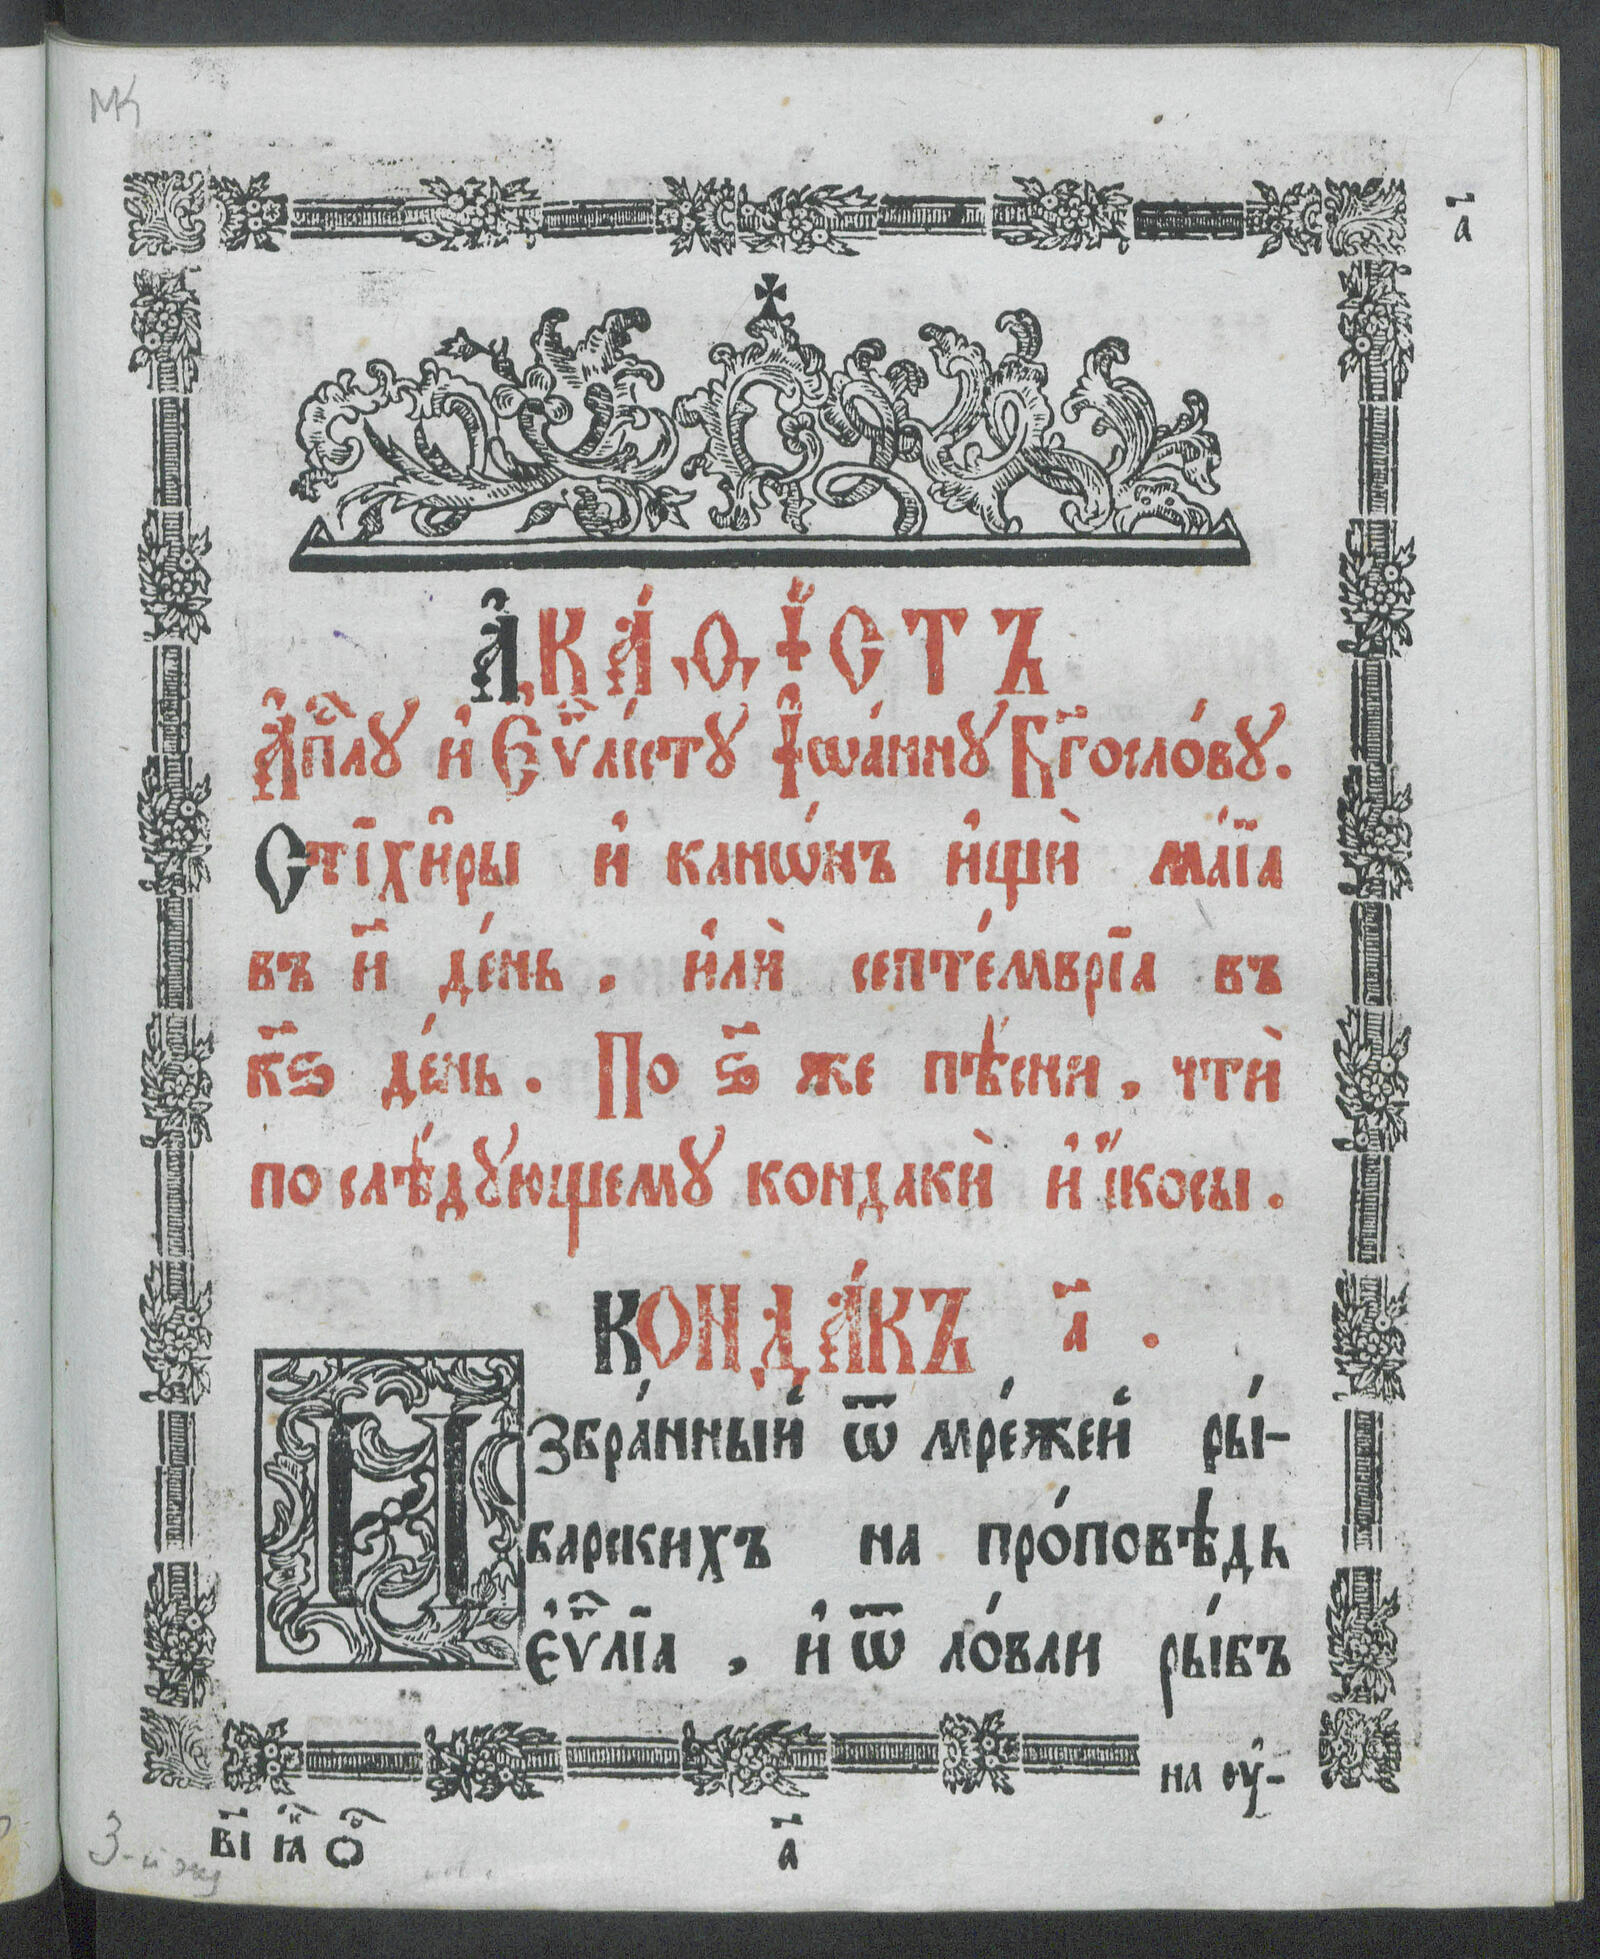 МК
а҃
А҆КА́Ѳ҆ІСТЪ
А҆пⷭ҇лꙋ и҆ Є҆ѵⷢ҇лі́стꙋ І҆ѡа́ннꙋ Бг҃осло́вꙋ.
Стїхи̑ры и҆ канѡ́нъ и҆щѝ ма́їа
въ и҃ де́нь. и҆лѝ септе́мврїа въ
к҃ѕ де́нь. По ѕ҃ же пѣ́сни, чтѝ
послѣ́дꙋющемꙋ кондакѝ и҆ і҆́косы.
КОНДА́КЪ а҃.
И
Збра́нный ѿ мре́жей ры́-
барскихъ на про́повѣдь
є҆ѵⷢ҇лїа, и҆ ѿ ло́вли ры́бъ
на оу҆-
в҃і
а҃